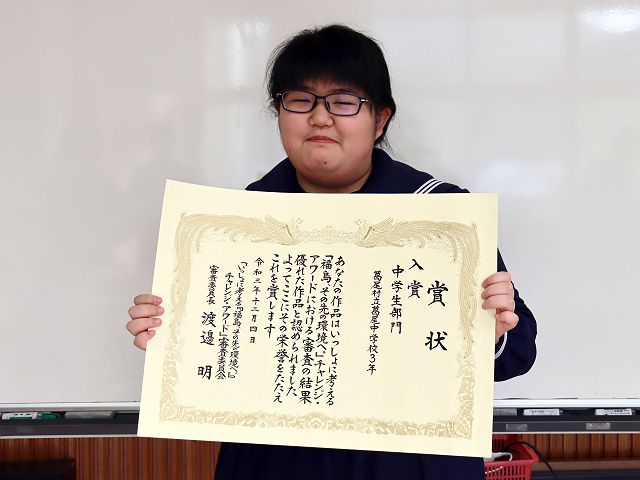 賞状
入賞
中学生部門
葛尾村立葛尾中学校3年
あなたの作品はいっしょに考える
「福島、その先の環境へ。」チャレンジ・
アワードにおける審査の結果
優れた作品と認められました
よってここにその栄誉をたたえ
これを賞します
令和三年十二月四日
「いっしょに考える「福島、その先の環境へ。」
チャレンジ・アワード」審査委員会
審査委員長 渡邉 明